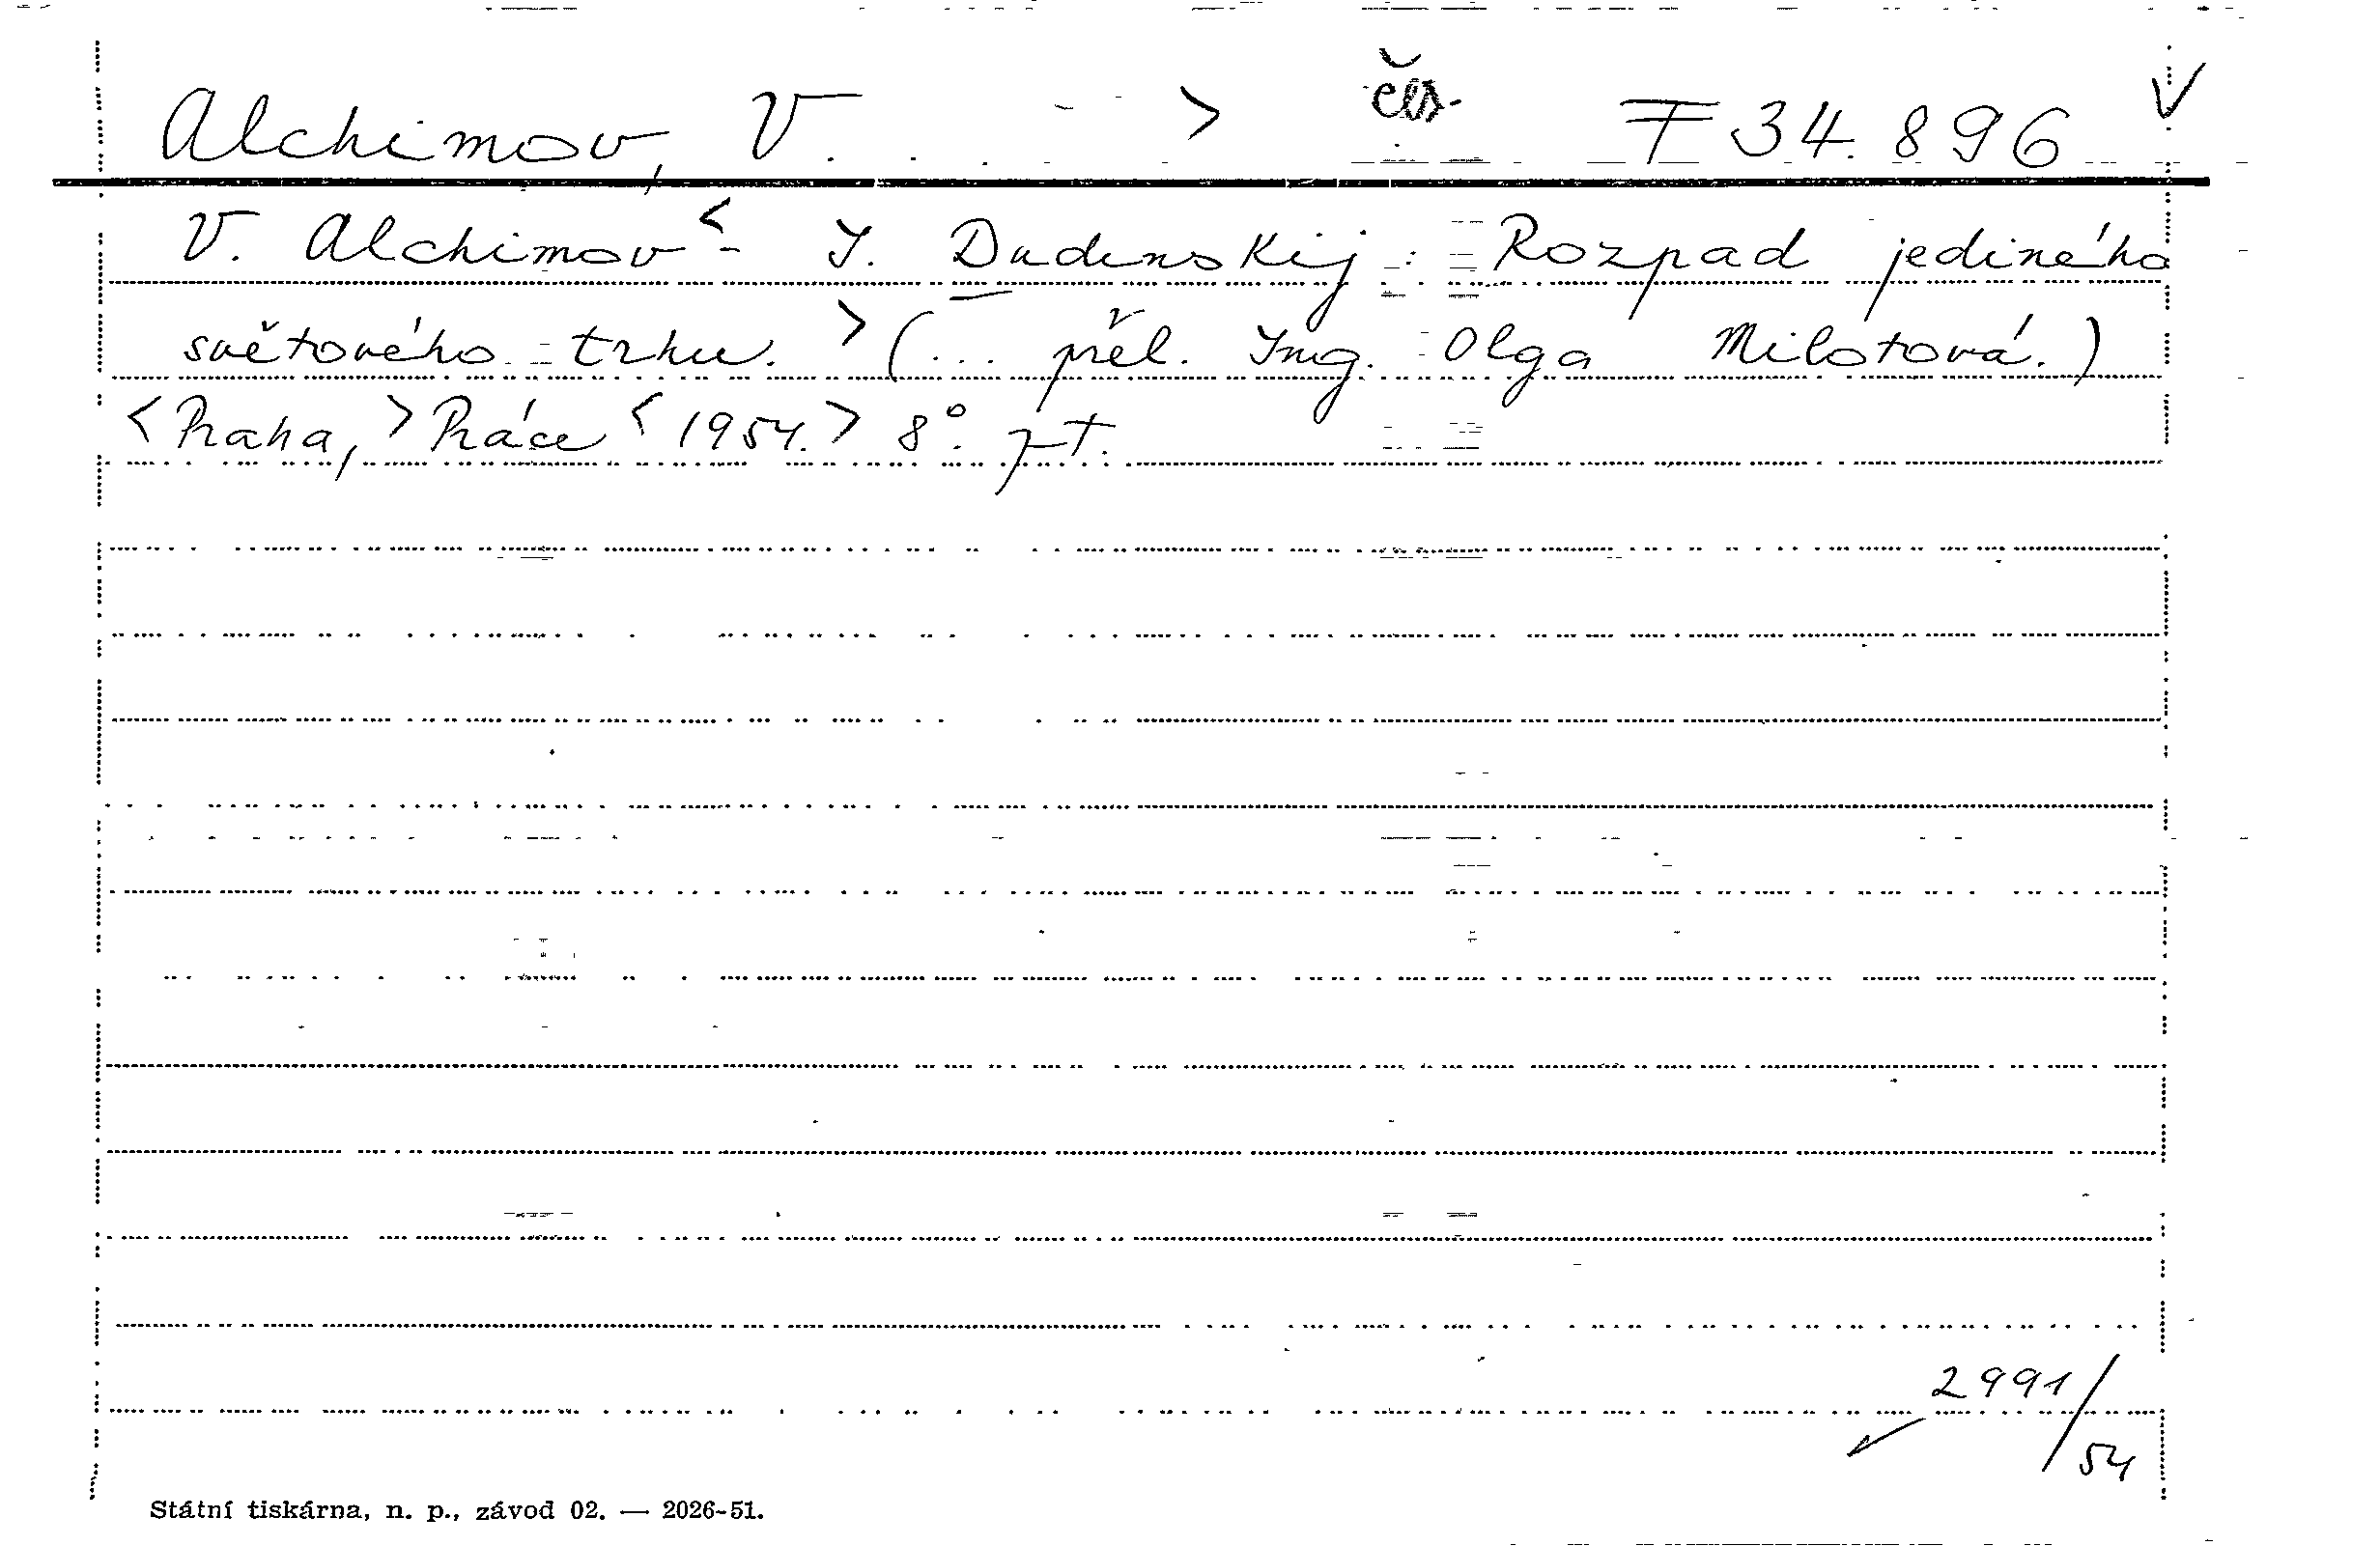 Alchimov, V. > čes. F 34.896 V
V. Alchimov < - I. Dudinskij : Rozpad jediného
světového trhu. > (... přel. Ing. Olga Milotová.)
<Praha,> Práce <1954.> 8°. pt.
2991/54
Státní tiskárna, n. p., závod 02. — 2026-51.